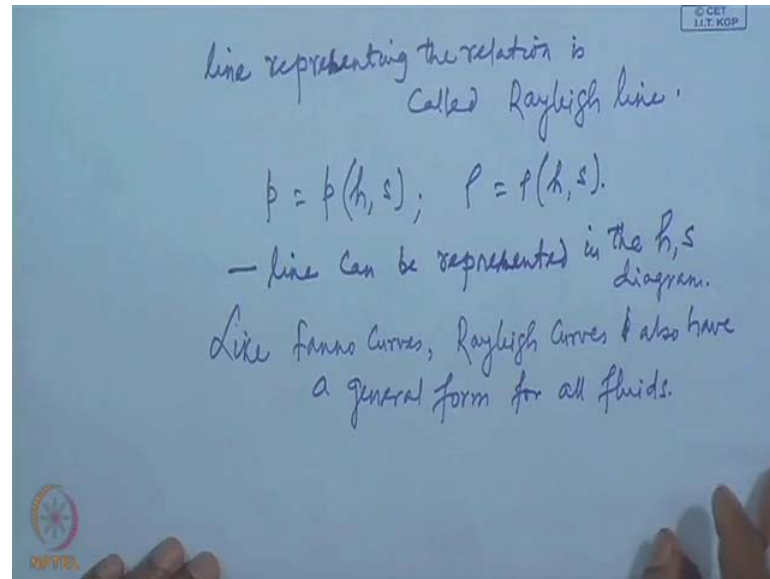 © CET
I.I.T. KGP
line representing the relation is
Called Rayleigh line.
p = p(h, s); ρ = ρ(h, s).
— line can be represented in the h, s
diagram.
Like Fanno Curves, Rayleigh Curves also have
a general form for all fluids.
NPTEL